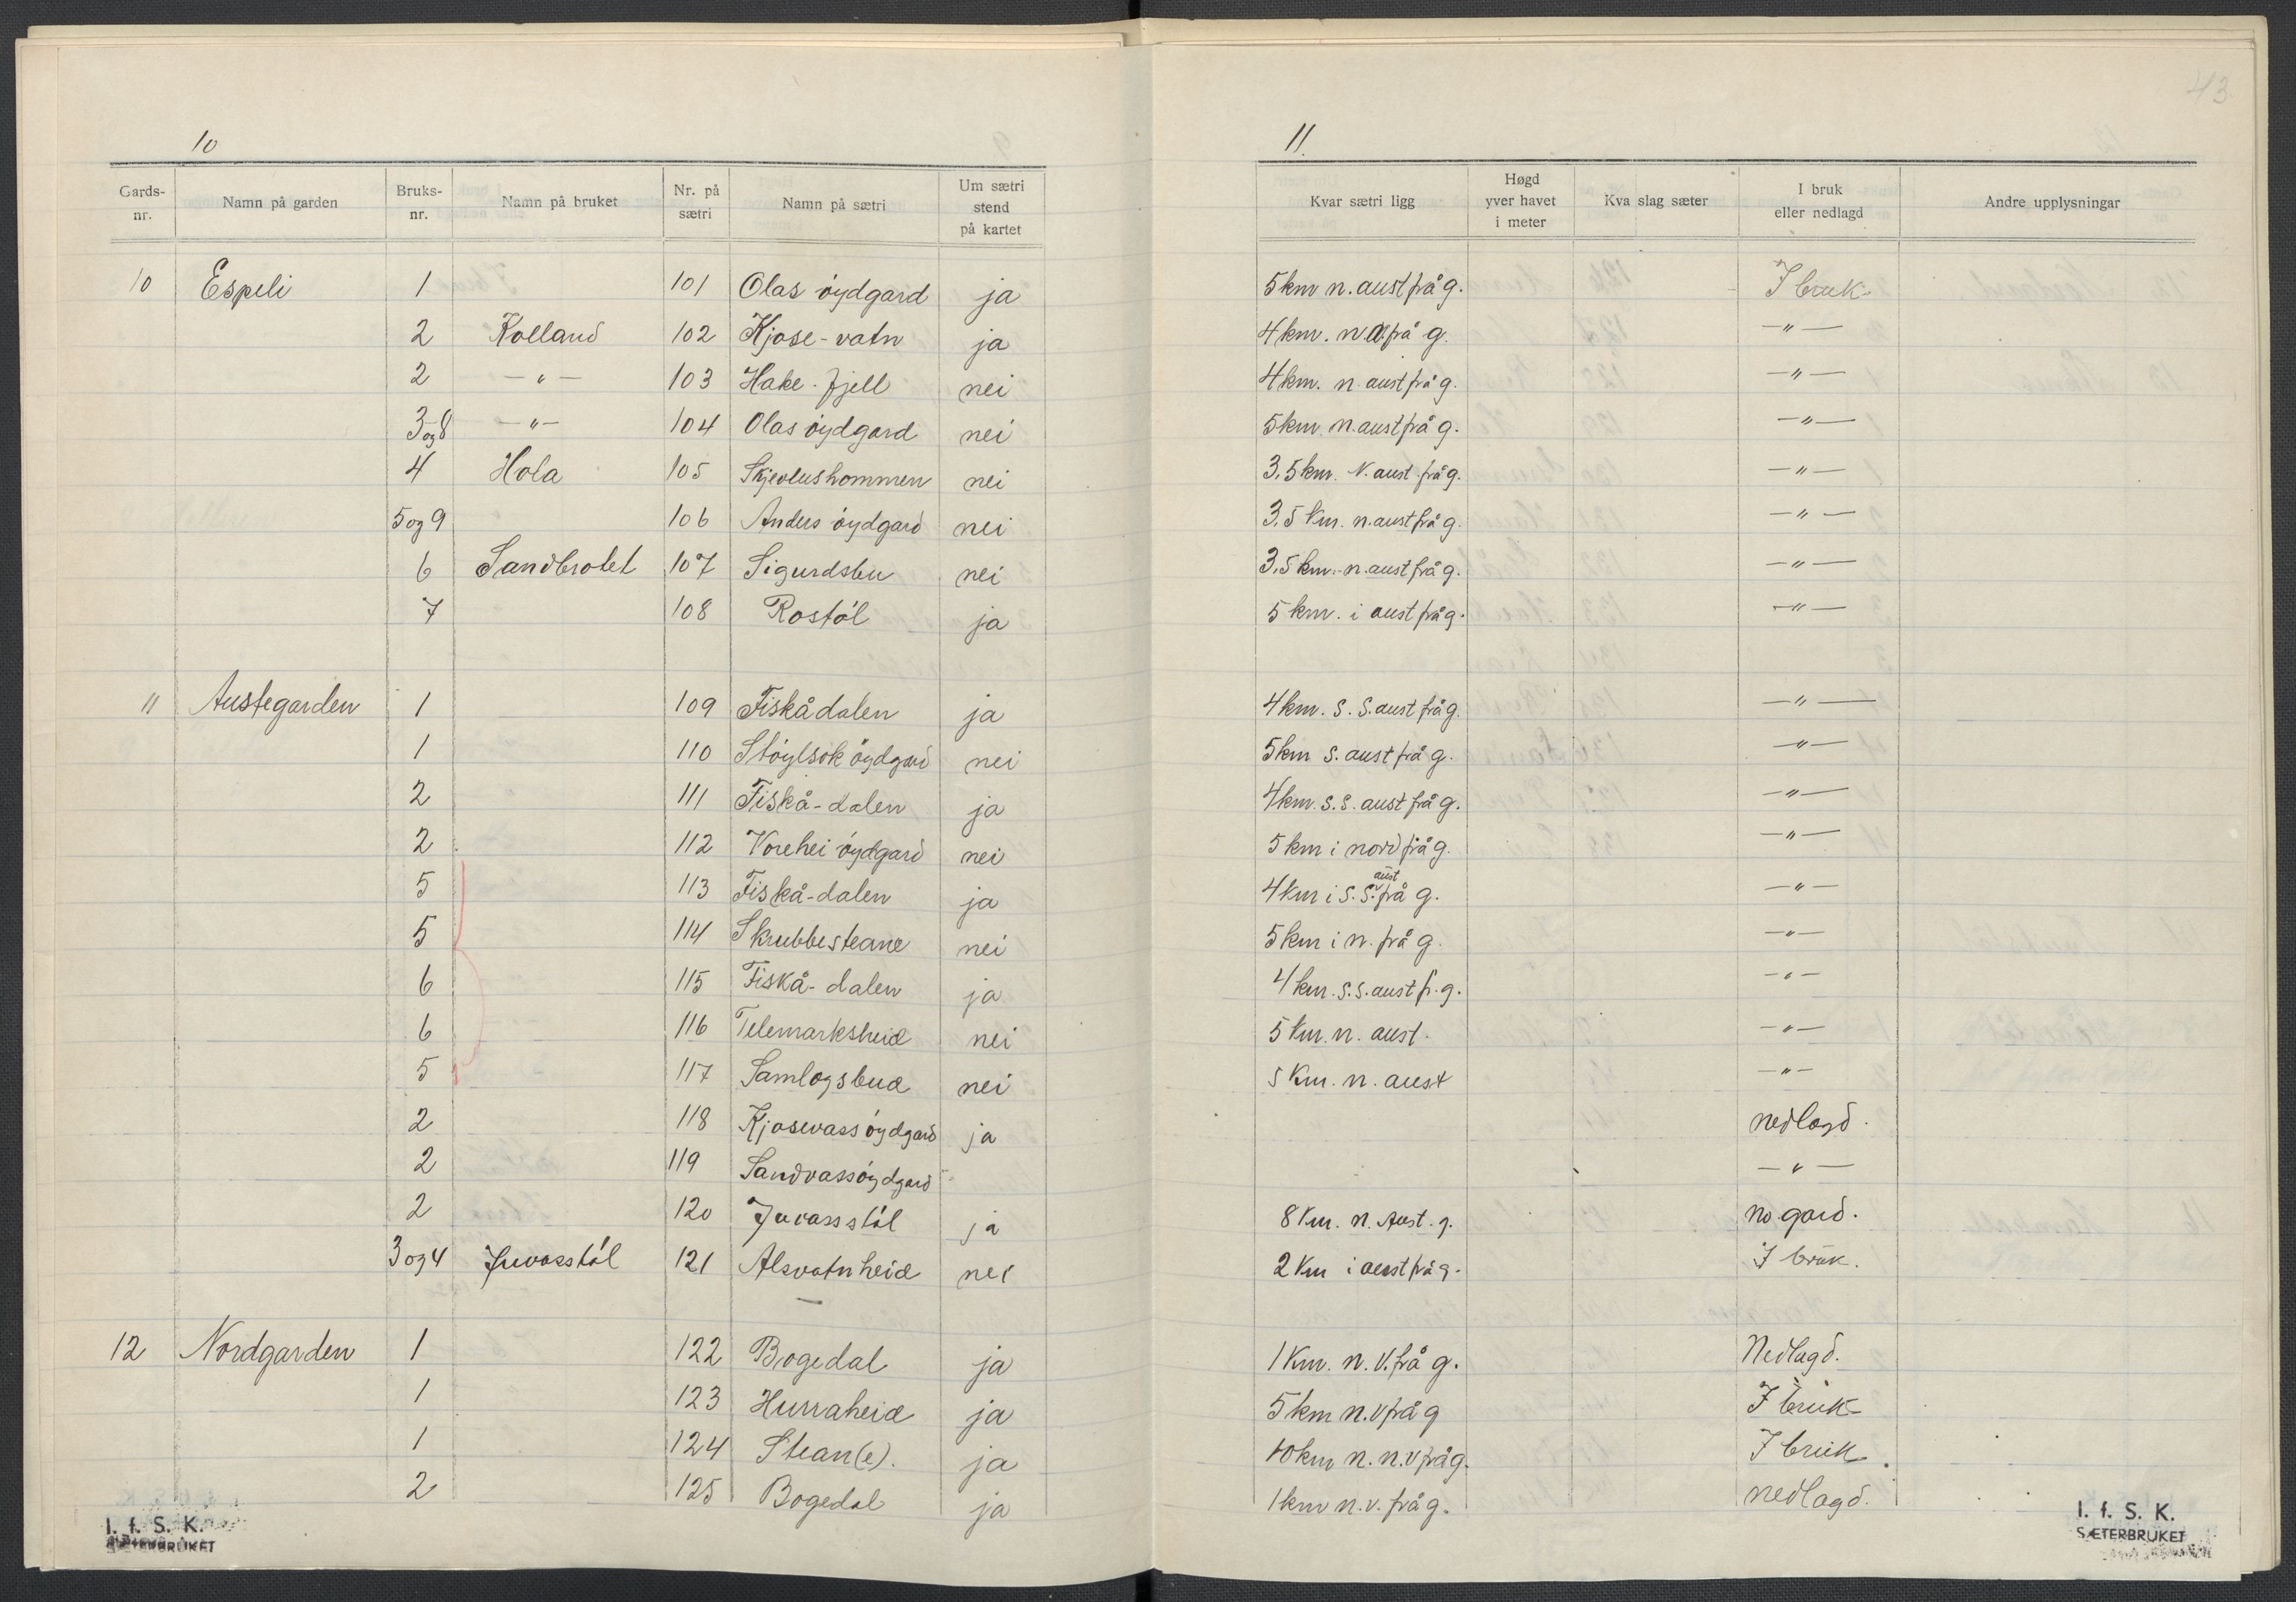 43
10
Gards-nr. Namn på garden Bruks-nr. Namn på bruket Nr. på sætri Namn på sætri Um sætri stend på kartet
10 Espeli 1 101 Olas øydgard ja
2 Kolland 102 Kjose-vatn ja
2 — " — 103 Hake-fjell nei
3 og 8 — " — 104 Olas øydgard nei
4 Hola 105 Skjevlushommen nei
5 og 9 106 Anders øydgard nei
6 Sandbrotet 107 Sigurdsbu nei
7 108 Rostøl ja
11 Austegarden 1 109 Fiskådalen ja
1 110 Støylsok øydgard nei
2 111 Fiskå-dalen ja
2 112 Vorehei øydgard nei
5 113 Fiskå-dalen ja
5 114 Skrubbesteane nei
6 115 Fiskå-dalen ja
6 116 Telemarksheid nei
5 117 Samlagsbud nei
2 118 Kjosevassøydgard ja
2 119 Sandvassøydgard
2 120 Juvasstøl ja
3 og 4 Juvasstøl 121 Alsvatnheid nei
12 Nordgarden 1 122 Bogedal ja
1 123 Hurraheid ja
1 124 Stean(e). ja
2 125 Bogedal ja
I. f. S. K.
SÆTERBRUKET
11.
Kvar sætri ligg Høgd yver havet i meter Kva slag sæter I bruk eller nedlagd Andre upplysningar
5 km n. aust frå g. I bruk
4 km. n.v. frå g. — " —
4 km. n. aust frå g. — " —
5 km. n. aust frå g. — " —
3,5 km. N. aust frå g. — " —
3,5 km. n. aust frå g. — " —
3,5 km. n. aust frå g. — " —
5 km. i aust frå g. — " —
4 km. s. s. aust frå g. — " —
5 km s. aust frå g. — " —
4 km. s. s. aust frå g. — " —
5 km i nord frå g. — " —
4 km i s. s. aust frå g. — " —
5 km i n. frå g. — " —
4 km. s. s. aust fr. g. — " —
5 km. n. aust. — " —
5 km. n. aust — " —
nedlagd.
— " —
8 km. n. Aust. g. no gard.
2 km i aust frå g. I bruk.
1 km. n. V. frå g. Nedlagd.
5 km n. v frå g I bruk
10 km n. n. v frå g. I bruk.
1 km n. v. frå g. nedlagd.
I. f. S. K.
SÆTERBRUKET